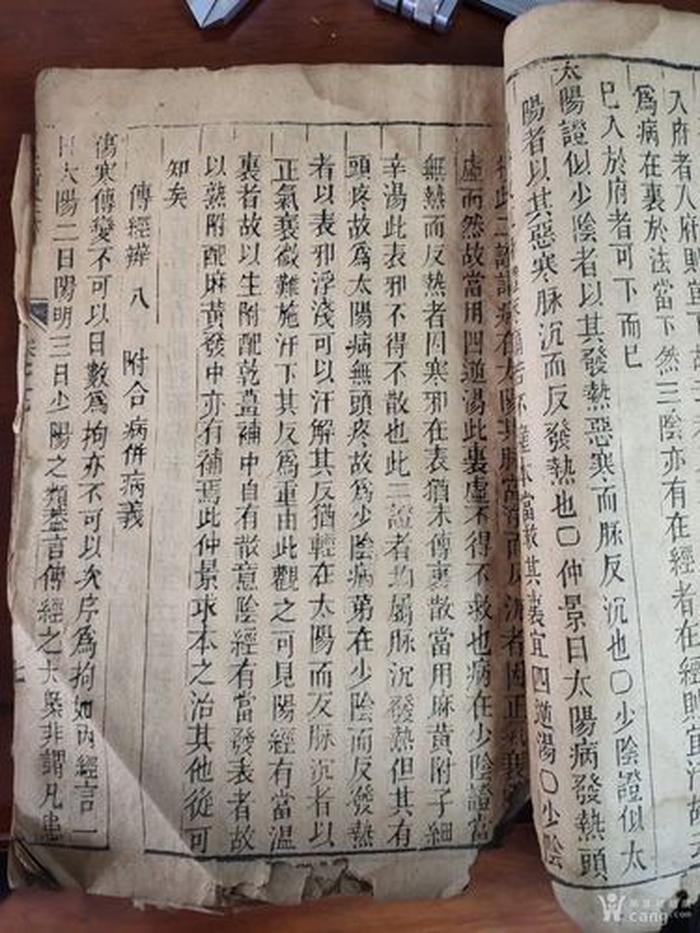 入府者入府則宜下故
爲病在裏於法當下然三陰亦有在經者在經則宜汗故
巳入於府者可下而巳
太陽證似少陰者以其發熱惡寒而脉反沉也〇少陰證似太
陽者以其惡寒脉沉而反發熱也〇仲景曰太陽病發熱頭
若不當救其裏宜四逆湯〇少陰
此二證謂病在太陽其脉當浮而反沉者因正氣衰
虛而然故當用四逆湯此裏虛不得不救也病在少陰證當
無熱而反熱者因寒邪在表猶未傳裏散當用麻黄附子細
辛湯此表邪不得不散也此二證者均屬脉沉發熱但其有
頭疼故爲太陽病無頭疼故爲少陰病第在少陰而反發熱
者以表邪浮淺可以汗解其反猶輕在太陽而反脉沉者以
正氣衰微難施汗下其反爲重由此觀之可見陽經有當温
裏者故以生附配乾薑補中自有散意陰經有當發表者故
以熟附配麻黄發中亦有補焉此仲景求本之治其他從可
知矣
傳經辨 八 附合病併病義
傷寒傳變不可以日數爲拘亦不可以次序爲拘如内經言一
日太陽二日陽明三日少陽之類蓋言傳經之大槩非謂凡患
七
cang.com